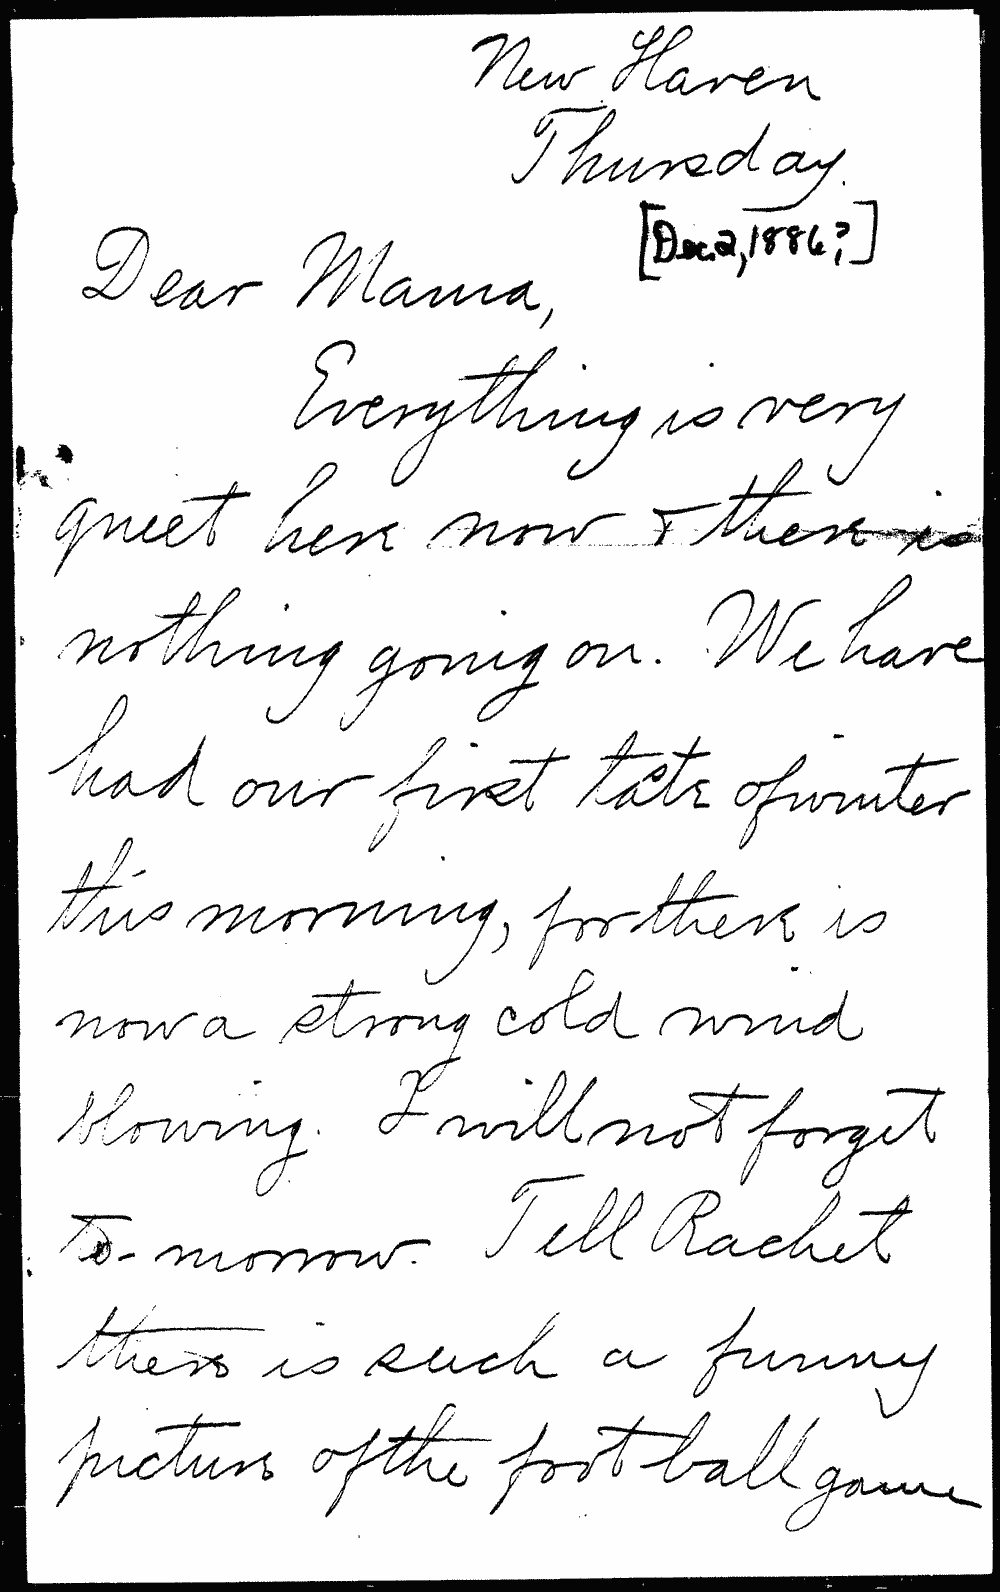 New Haven
Thursday.
[Dec. 2, 1886?]
Dear Mama,
Everything is very
quiet here now & there is
nothing going on. We have
had our first taste of winter
this morning, for there is
now a strong cold wind
blowing. I will not forget
to-morrow. Tell Rachet
there is such a funny
picture of the foot ball game